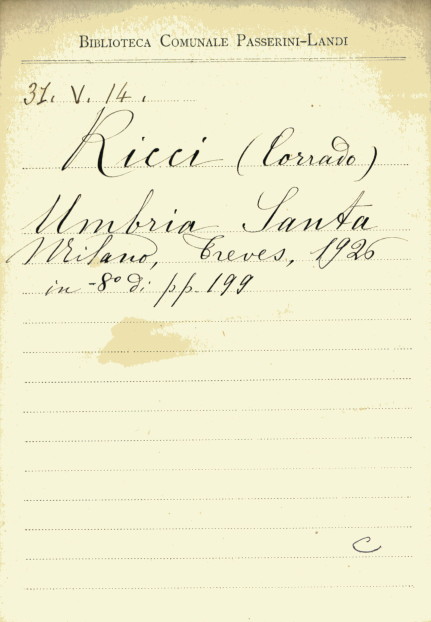 BIBLIOTECA COMUNALE PASSERINI-LANDI
31. V. 14.
Ricci (Corrado)
Umbria Santa
Milano, Treves, 1926
in -8° di pp. 199
C